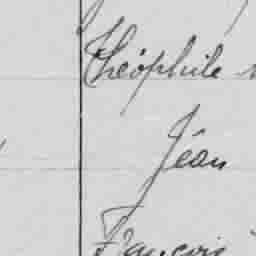 Théophile
Jéan
François